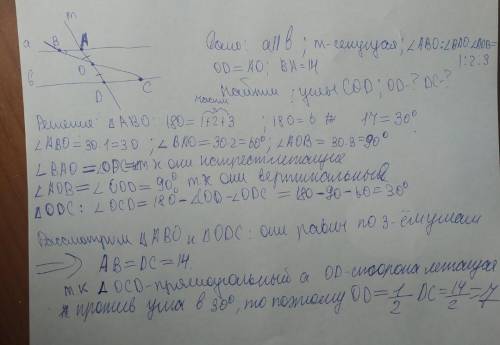 m
a B A
O
b D C
Дано: a||b; m-секущая; ∠ABO:∠BAO:∠AOB=
1:2:3
OD=AO; BA=14
Найти: углы COD; OD-? DC-?
части
Решение: ΔABO: 180=1+2+3 ; 180:6 1ч=30°
∠ABO=30·1=30°; ∠BAO=30·2=60°; ∠AOB=30·3=90°
∠BAO=∠ODC т.к они накрестлежащие
∠AOB=∠COD=90° т.к они вертикальные
ΔODC: ∠OCD=180-∠OD-∠ODC=180-90-60=30°
Рассмотрим ΔABO и ΔODC: они равны по 3-ём углам
⟹ AB=DC=14.
т.к ΔOCD-прямоугольный а OD-сторона лежащая
против угла в 30°, то поэтому OD=1/2 DC=14/2=7